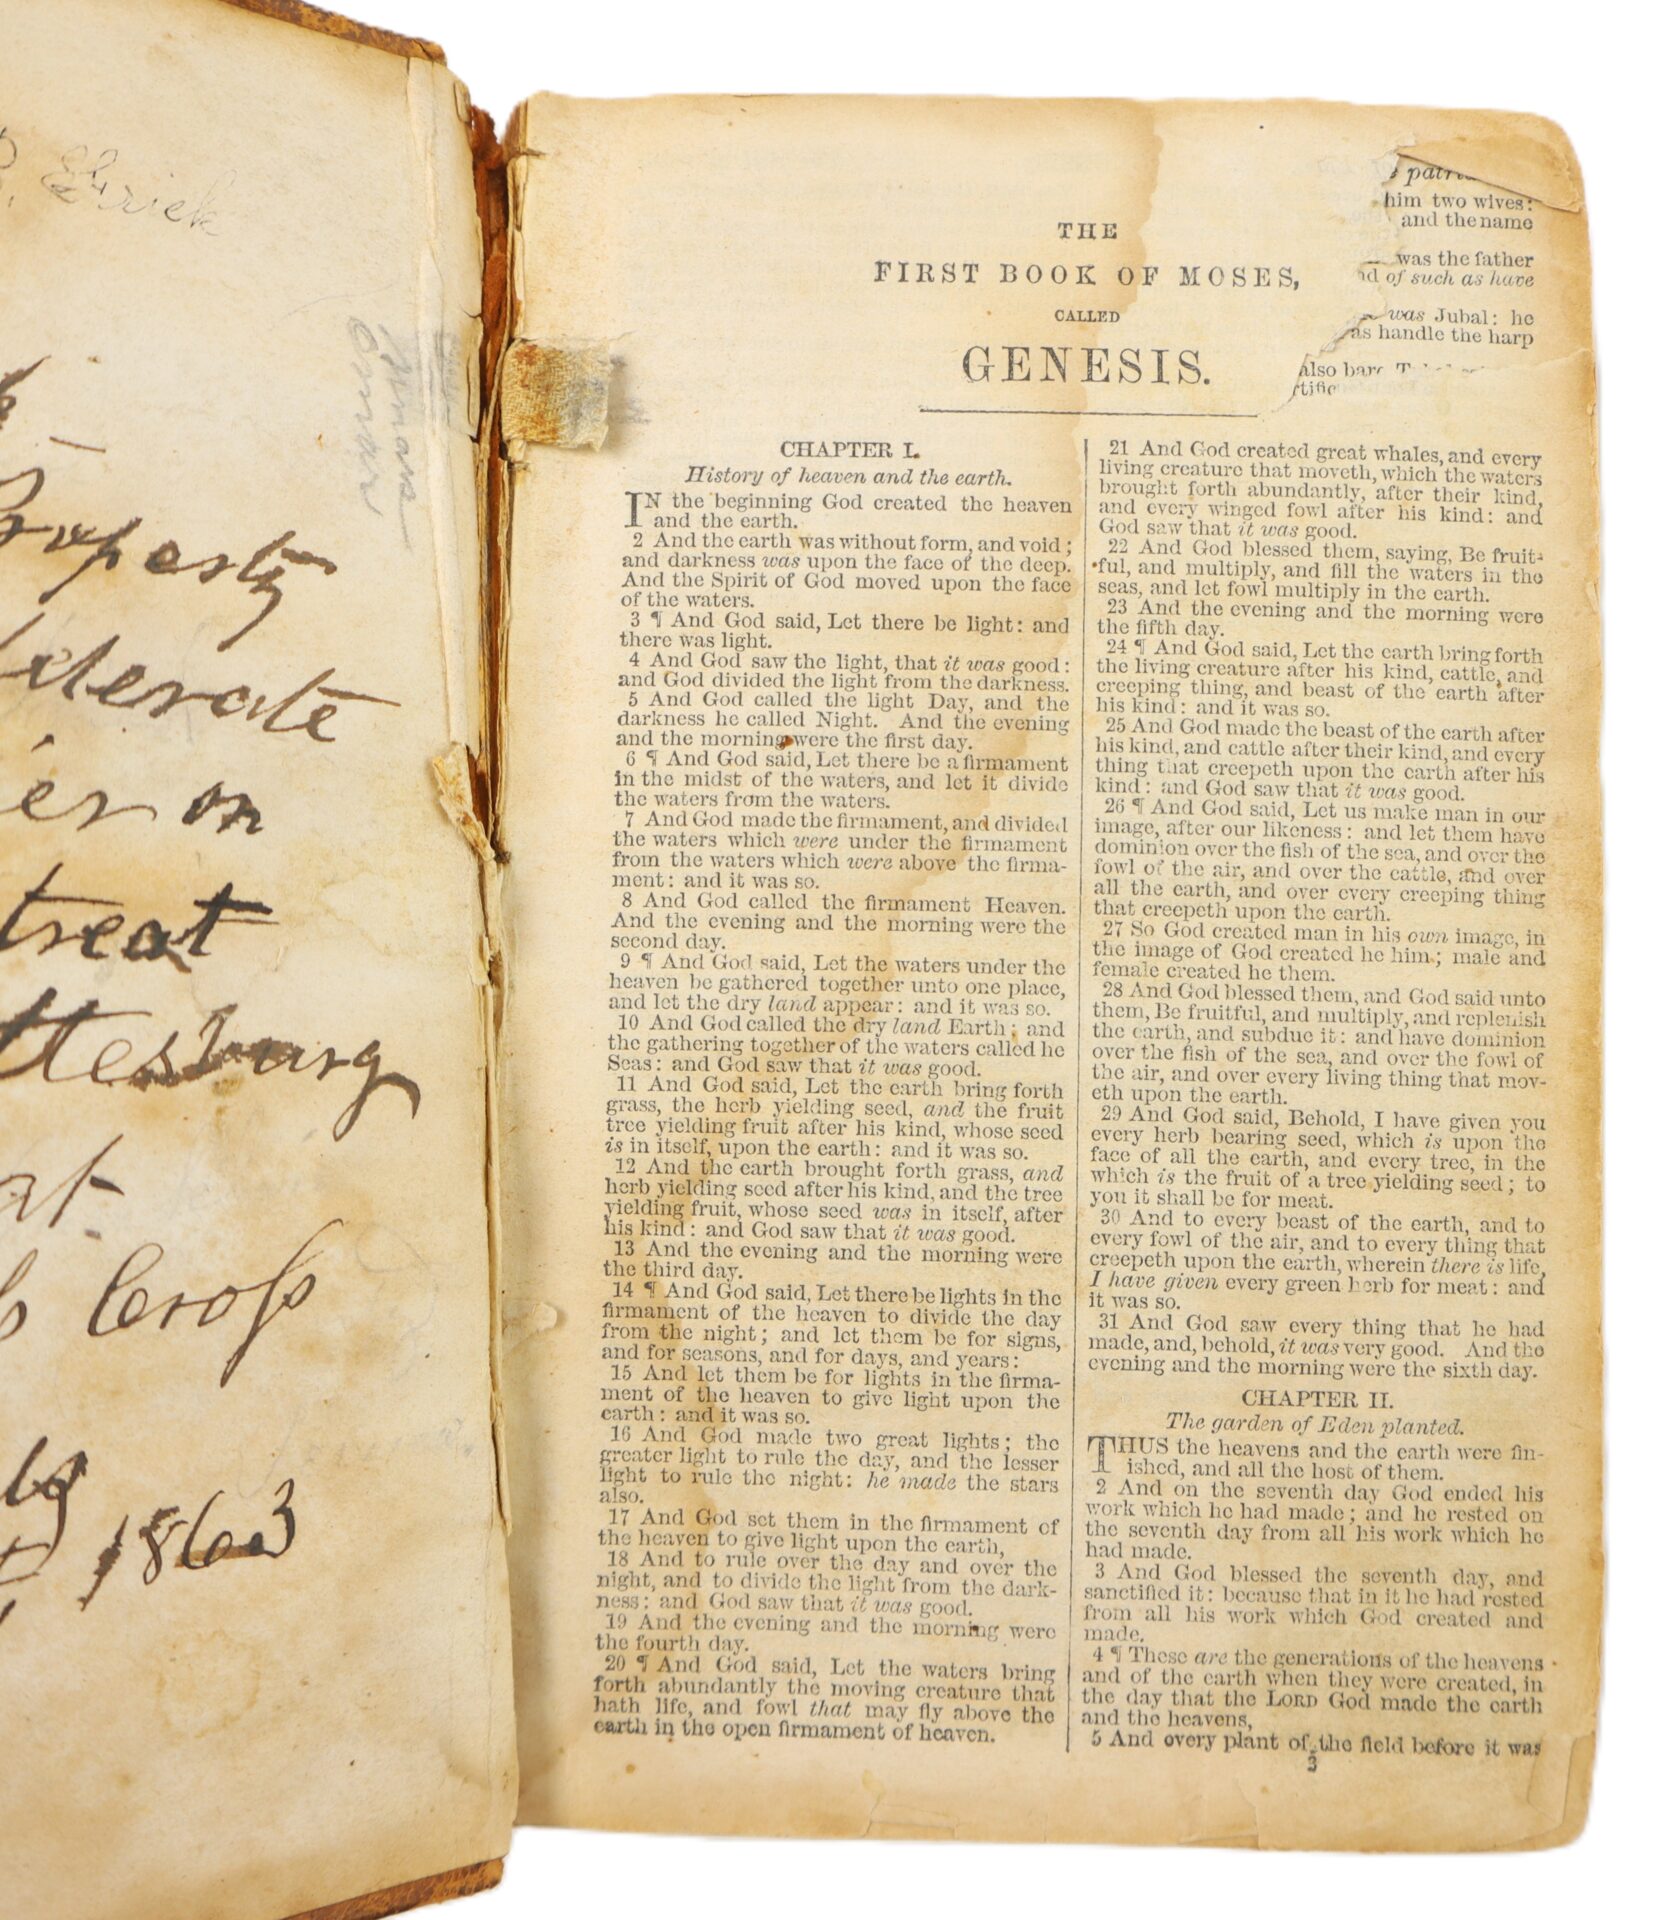 Eback
Property
er on
treat
Cross
1863
patri
him two wives:
and the name
was the father
of such as have
was Jubal: he
as handle the harp
also bare
THE
FIRST BOOK OF MOSES,
CALLED
GENESIS.
CHAPTER I.
History of heaven and the earth.
IN the beginning God created the heaven
and the earth.
2 And the earth was without form, and void;
and darkness was upon the face of the deep.
And the Spirit of God moved upon the face
of the waters.
3 ¶ And God said, Let there be light: and
there was light.
4 And God saw the light, that it was good:
and God divided the light from the darkness.
5 And God called the light Day, and the
darkness he called Night. And the evening
and the morning were the first day.
6 ¶ And God said, Let there be a firmament
in the midst of the waters, and let it divide
the waters from the waters.
7 And God made the firmament, and divided
the waters which were under the firmament
from the waters which were above the firma-
ment: and it was so.
8 And God called the firmament Heaven.
And the evening and the morning were the
second day.
9 ¶ And God said, Let the waters under the
heaven be gathered together unto one place,
and let the dry land appear: and it was so.
10 And God called the dry land Earth; and
the gathering together of the waters called he
Seas: and God saw that it was good.
11 And God said, Let the earth bring forth
grass, the herb yielding seed, and the fruit
tree yielding fruit after his kind, whose seed
is in itself, upon the earth: and it was so.
12 And the earth brought forth grass, and
herb yielding seed after his kind, and the tree
yielding fruit, whose seed was in itself, after
his kind: and God saw that it was good.
13 And the evening and the morning were
the third day.
14 ¶ And God said, Let there be lights in the
firmament of the heaven to divide the day
from the night; and let them be for signs,
and for seasons, and for days, and years:
15 And let them be for lights in the firma-
ment of the heaven to give light upon the
earth: and it was so.
16 And God made two great lights; the
greater light to rule the day, and the lesser
light to rule the night: he made the stars
also.
17 And God set them in the firmament of
the heaven to give light upon the earth,
18 And to rule over the day and over the
night, and to divide the light from the dark-
ness: and God saw that it was good.
19 And the evening and the morning were
the fourth day.
20 ¶ And God said, Let the waters bring
forth abundantly the moving creature that
hath life, and fowl that may fly above the
earth in the open firmament of heaven.
21 And God created great whales, and every
living creature that moveth, which the waters
brought forth abundantly, after their kind,
and every winged fowl after his kind: and
God saw that it was good.
22 And God blessed them, saying, Be fruit-
ful, and multiply, and fill the waters in the
seas, and let fowl multiply in the earth.
23 And the evening and the morning were
the fifth day.
24 ¶ And God said, Let the earth bring forth
the living creature after his kind, cattle, and
creeping thing, and beast of the earth after
his kind: and it was so.
25 And God made the beast of the earth after
his kind, and cattle after their kind, and every
thing that creepeth upon the earth after his
kind: and God saw that it was good.
26 ¶ And God said, Let us make man in our
image, after our likeness: and let them have
dominion over the fish of the sea, and over the
fowl of the air, and over the cattle, and over
all the earth, and over every creeping thing
that creepeth upon the earth.
27 So God created man in his own image, in
the image of God created he him; male and
female created he them.
28 And God blessed them, and God said unto
them, Be fruitful, and multiply, and replenish
the earth, and subdue it: and have dominion
over the fish of the sea, and over the fowl of
the air, and over every living thing that mov-
eth upon the earth.
29 And God said, Behold, I have given you
every herb bearing seed, which is upon the
face of all the earth, and every tree, in the
which is the fruit of a tree yielding seed; to
you it shall be for meat.
30 And to every beast of the earth, and to
every fowl of the air, and to every thing that
creepeth upon the earth, wherein there is life,
I have given every green herb for meat: and
it was so.
31 And God saw every thing that he had
made, and, behold, it was very good. And the
evening and the morning were the sixth day.
CHAPTER II.
The garden of Eden planted.
THUS the heavens and the earth were fin-
ished, and all the host of them.
2 And on the seventh day God ended his
work which he had made; and he rested on
the seventh day from all his work which he
had made.
3 And God blessed the seventh day, and
sanctified it: because that in it he had rested
from all his work which God created and
made.
4 ¶ These are the generations of the heavens
and of the earth when they were created, in
the day that the LORD God made the earth
and the heavens,
5 And every plant of the field before it was
3